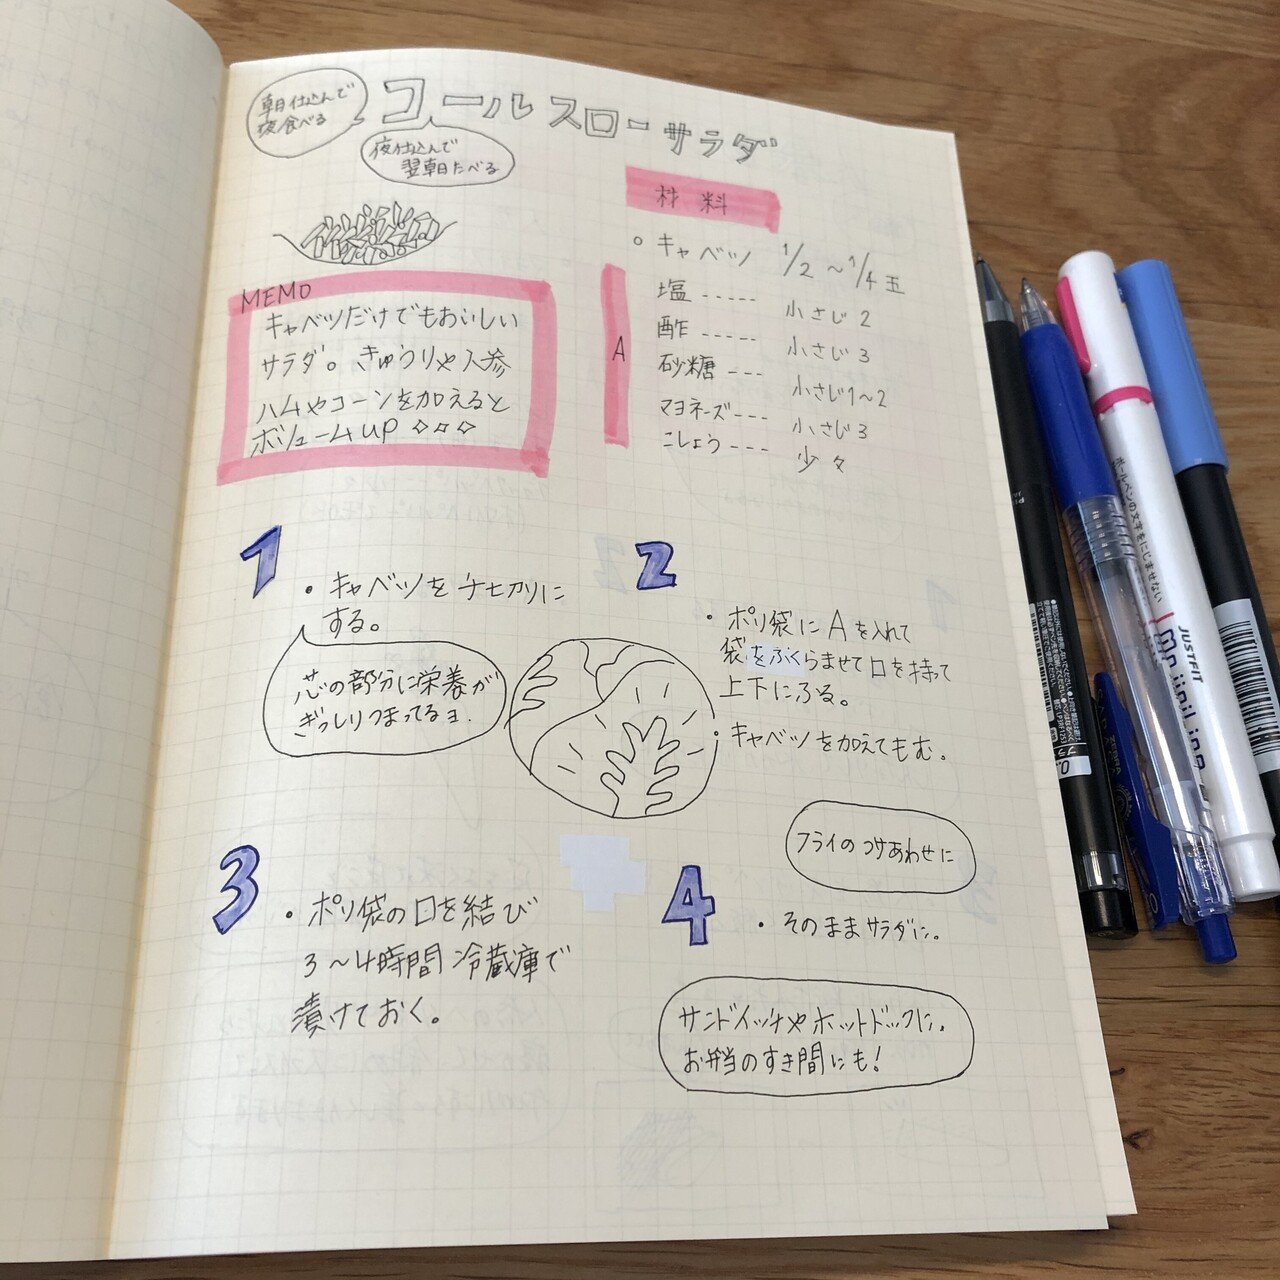 朝仕込んで
夜食べる
コールスローサラダ
夜仕込んで
翌朝たべる
材料
○ キャベツ 1/2〜1/4玉
A
塩 ----- 小さじ2
酢 ----- 小さじ3
砂糖 --- 小さじ1〜2
マヨネーズ--- 小さじ3
こしょう --- 少々
MEMO
キャベツだけでもおいしい
サラダ。きゅうりや人参
ハムやコーンを加えると
ボリュームUP ◇◇◇
1
・キャベツを千七カリに
する。
芯の部分に栄養が
ぎっしりつまってるヨ.
2
・ポリ袋にAを入れて
袋をふくらませて口を持って
上下にふる。
・キャベツを加えてもむ。
3
・ポリ袋の口を結び
3〜4時間冷蔵庫で
漬けておく。
4
フライのつけあわせに
・そのままサラダに。
サンドイッチやホットドックに。
お弁当のすき間にも!
ボールペンの文字をにじませない
JUSTFIT
Mojiniline
ZEBRA